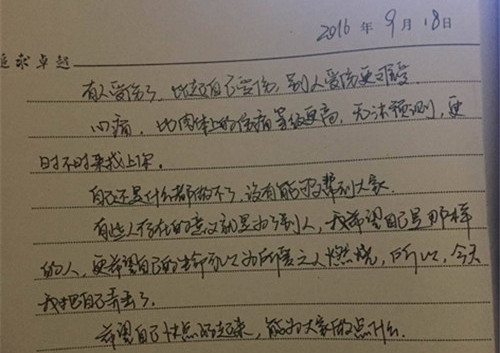 2016 年 9 月 18 日
追求卓越
有人受伤了，比起自己受伤，别人受伤更难受
心痛，比肉体上的伤痛等级更高，无法预测，更
时不时来找上你。
自己还是什么都做不了，没有能够帮到大家
有些人存在的意义就是为了别人，我希望自己是那样
的人，更希望自己的生命可以为所爱之人燃烧，所以，今天
我把自己弄丢了。
希望自己快点好起来，能为大家做点什么.